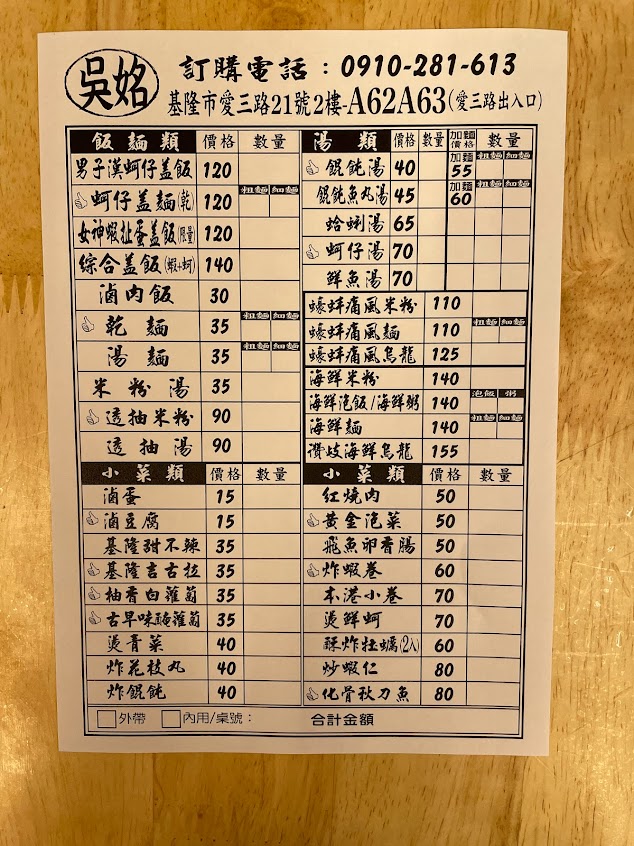 吳姳
訂購電話：0910-281-613
基隆市愛三路21號2樓-A62A63(愛三路出入口)
飯麵類 價格 數量
男子漢蚵仔盖飯 120
蚵仔盖麵(乾) 120 粗麵 細麵
女神蝦扯蛋盖飯(限量) 120
綜合盖飯(蝦+蚵) 140
滷肉飯 30
乾麵 35 粗麵 細麵
湯麵 35 粗麵 細麵
米粉湯 35
透抽米粉 90
透抽湯 90
湯類 價格 數量 加麵價格 粗麵 細麵
餛飩湯 40 加麵 55
餛飩魚丸湯 45 加麵 60 粗麵 細麵
蛤蜊湯 65
蚵仔湯 70
鮮魚湯 70
蠔蚌痛風米粉 110
蠔蚌痛風麵 110 粗麵 細麵
蠔蚌痛風烏龍 125
海鮮米粉 140
海鮮泡飯/海鮮粥 140 泡飯 粥
海鮮麵 140 粗麵 細麵
讚岐海鮮烏龍 155
小菜類 價格 數量
滷蛋 15
滷豆腐 15
基隆甜不辣 35
基隆吉古拉 35
柚香白蘿蔔 35
古早味醃蘿蔔 35
燙青菜 40
炸花枝丸 40
炸餛飩 40
小菜類 價格 數量
紅燒肉 50
黃金泡菜 50
飛魚卵香腸 50
炸蝦卷 60
本港小卷 70
燙鮮蚵 70
酥炸牡蠣(2入) 60
炒蝦仁 80
化骨秋刀魚 80
外帶 內用/桌號： 合計金額